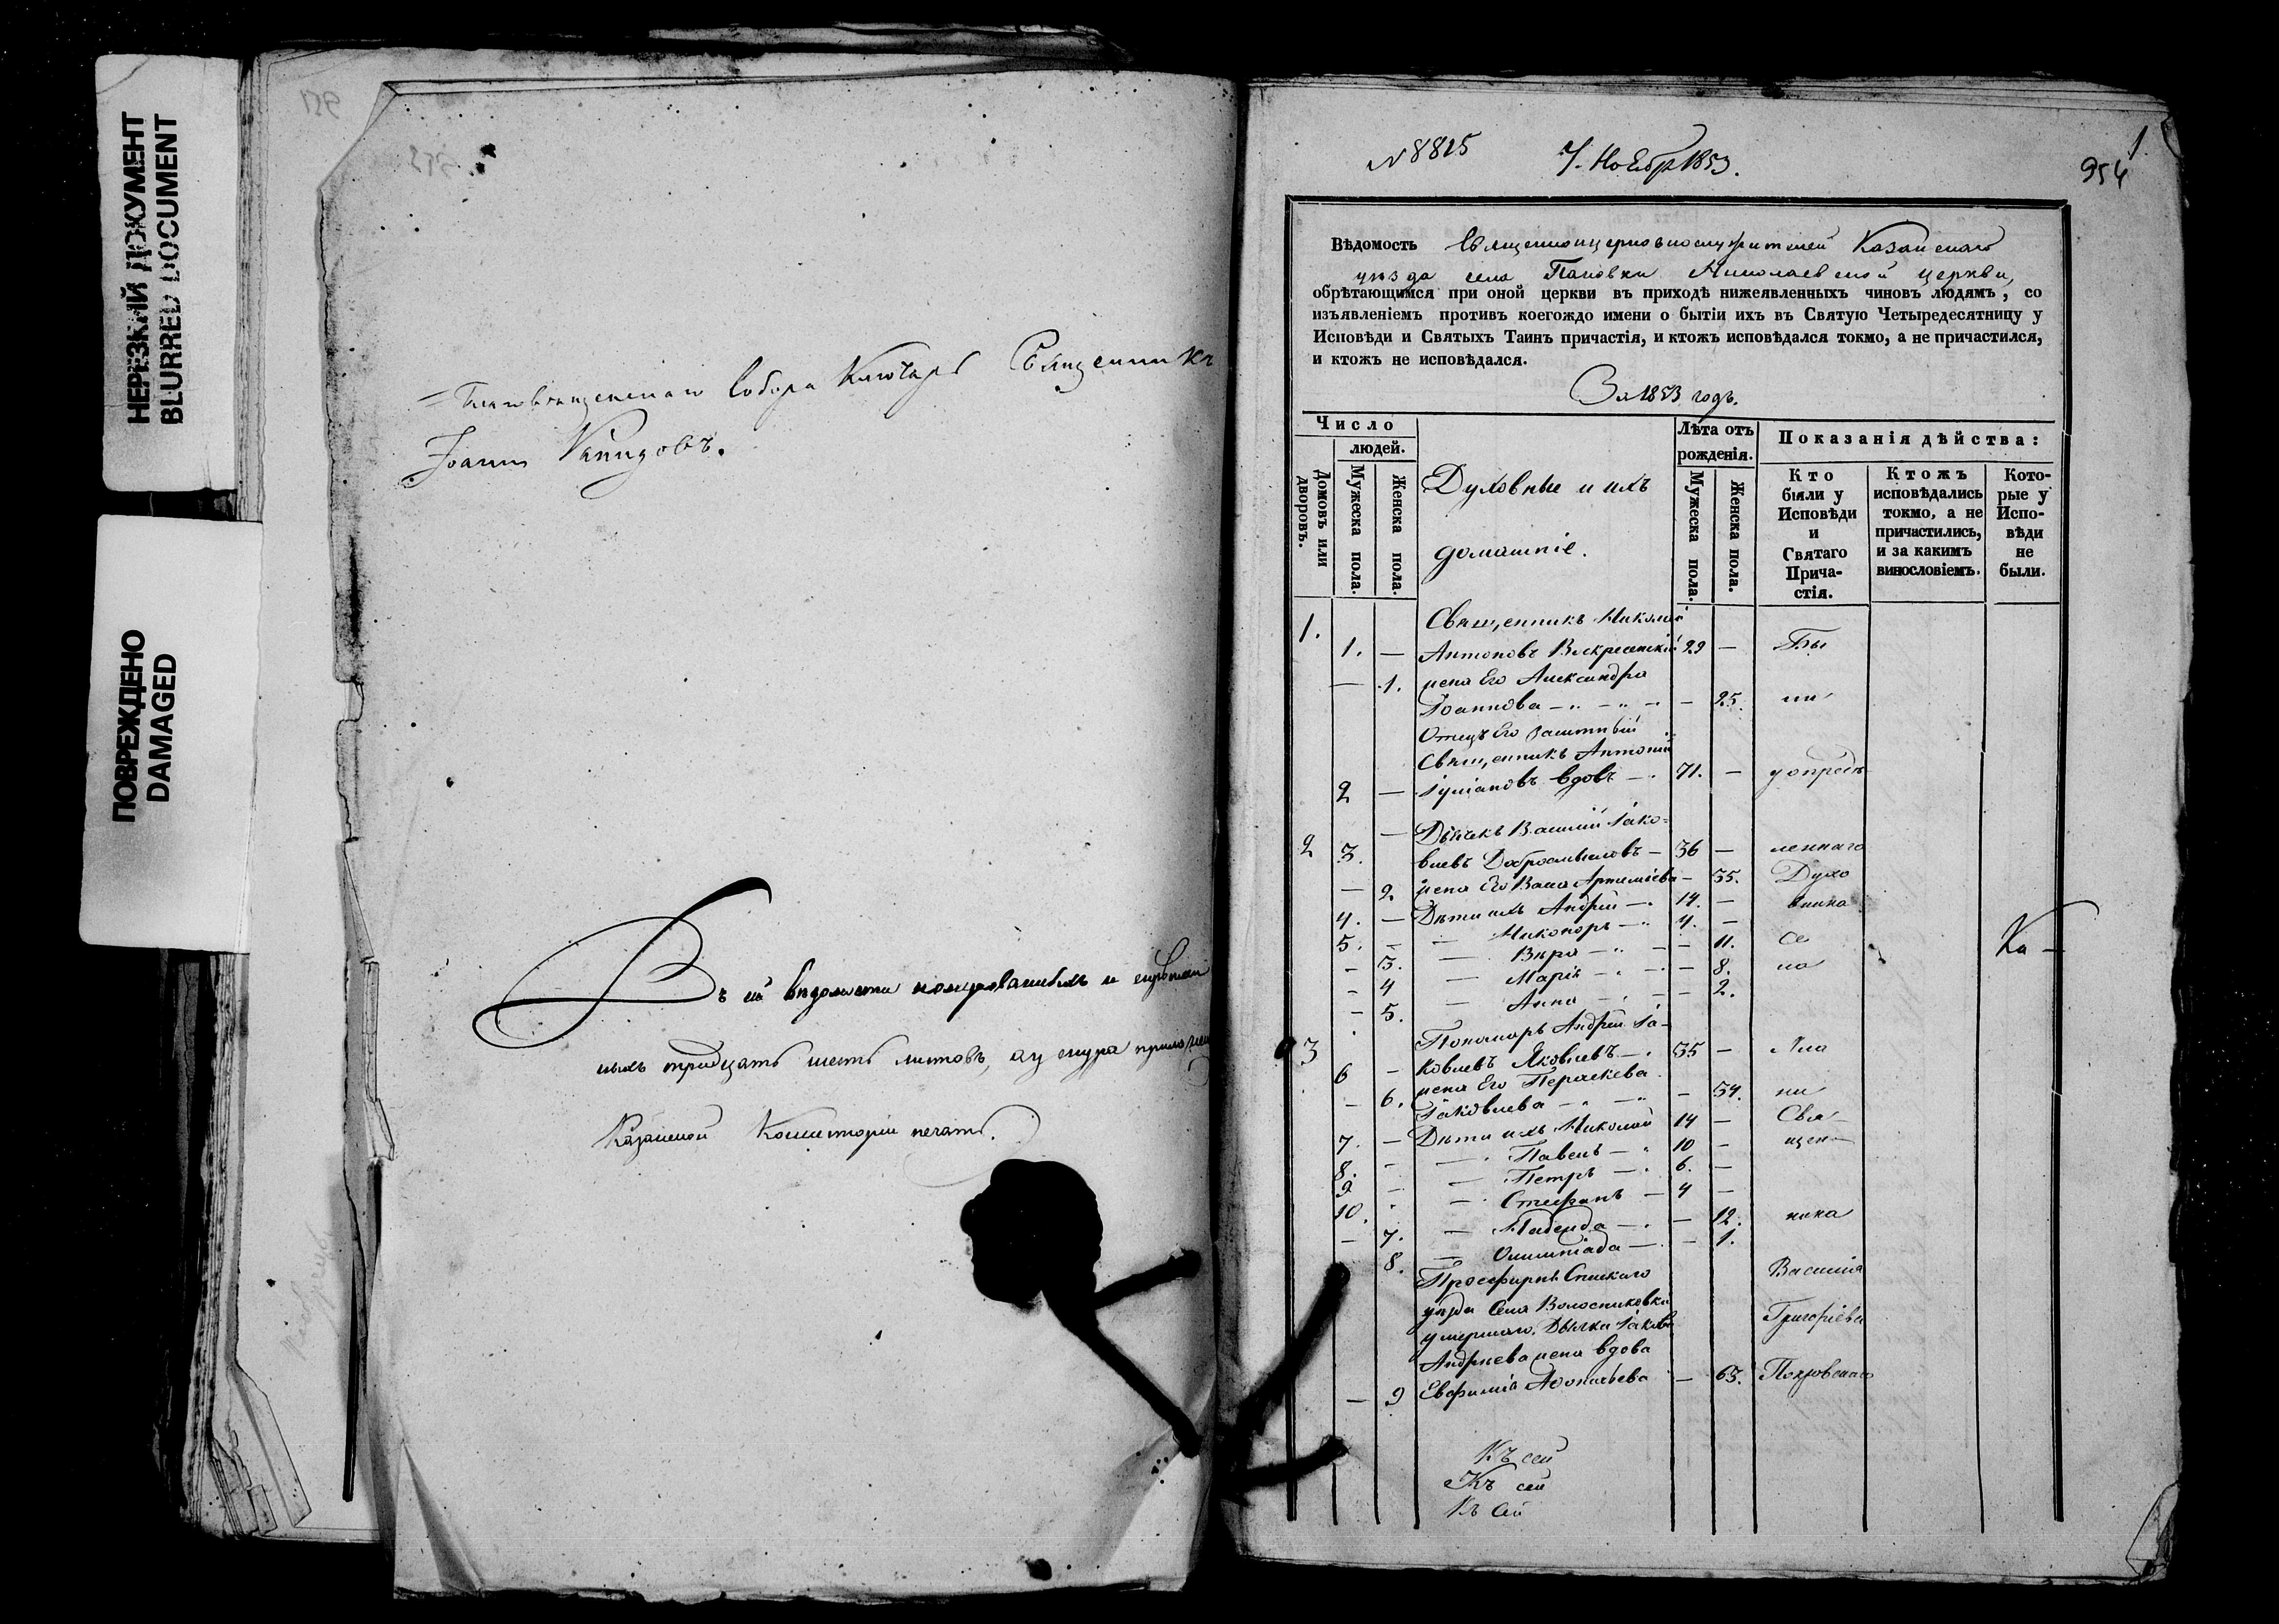 НЕРЕЗКИЙ ДОКУМЕНТ
BLURRED DOCUMENT
ПОВРЕЖДЕНО
DAMAGED
Благовѣщенскаго Собора Ключарь Священникъ
Іоаннъ
Въ сей вѣдомости нумерованныхъ и
ныхъ тридцать шесть листовъ, а у снура приложена
Казанской Консисторіи печать.
N 8825 7. Ноября 1853.
1.
954
Вѣдомость Священноцерковнослужителей Казанскаго
уѣзда села Пановки Николаевской церкви,
обрѣтающимся при оной церкви въ приходѣ нижеявленныхъ чиновъ людямъ, со
изъявленіемъ противъ коегождо имени о бытіи ихъ въ Святую Четыредесятницу у
Исповѣди и Святыхъ Таинъ причастія, и ктожъ исповѣдался токмо, а не причастился,
и ктожъ не исповѣдался.
За 1853 годъ.
Число
людей.
Домовъ или дворовъ.
Мужеска пола.
Женска пола.
Духовные и ихъ
домашніе.
Лѣта отъ
рожденія.
Мужеска пола.
Женска пола.
Показанія дѣйства:
Кто
были у
Исповѣди
и
Святаго
Прича-
стія.
Ктожъ
исповѣдались
токмо, а не
причастились,
и за какимъ
винословіемъ.
Кото-
рые у
Испо-
вѣди
не
были.
1. Священникъ Николай
1. — Антоновъ Воскресенскій 29 — Бы
— 1. жена Его Александра
Іоаннова — — 25. ли
Отецъ Его заштатный
Священникъ Антоній
2 — вдовъ — 71. — у опредѣ
— Дьячекъ Василій Іако-
2 3. влевъ Добросмысловъ — 36 — леннаго
— 2. жена Его Васса Артеміева — 35. Духо
4. — Дѣти ихъ Андрей — 14. — вника
5. — — Никоноръ — 4. —
— 3. — Вѣра — — 11. Се
— 4 — Марія — — 8. ла
— 5. — Анна — — 2.
Ка —
Пономарь Андрей Іа-
3 6 — ковлевъ Яковлевъ — 35 — Кла
— 6. жена Его Параскева
Іаковлева — — 34. ки
7. — Дѣти ихъ Николай 14 — Свя-
8. — — Павелъ — 10 — щен-
9 — — Петръ — 6. —
10. — Стефанъ — 4 —
— 7. — — — 12. ника
8. — Олимпіада — — 1.
Просфирня Спаскаго Василія
уѣзда Села Волостниковки
умершаго Дьячка Іакова Григоріева
Андреева жена вдова
— 9 Евфимія — 63. Покровскаго
Къ сей
Къ сей
Къ Сей